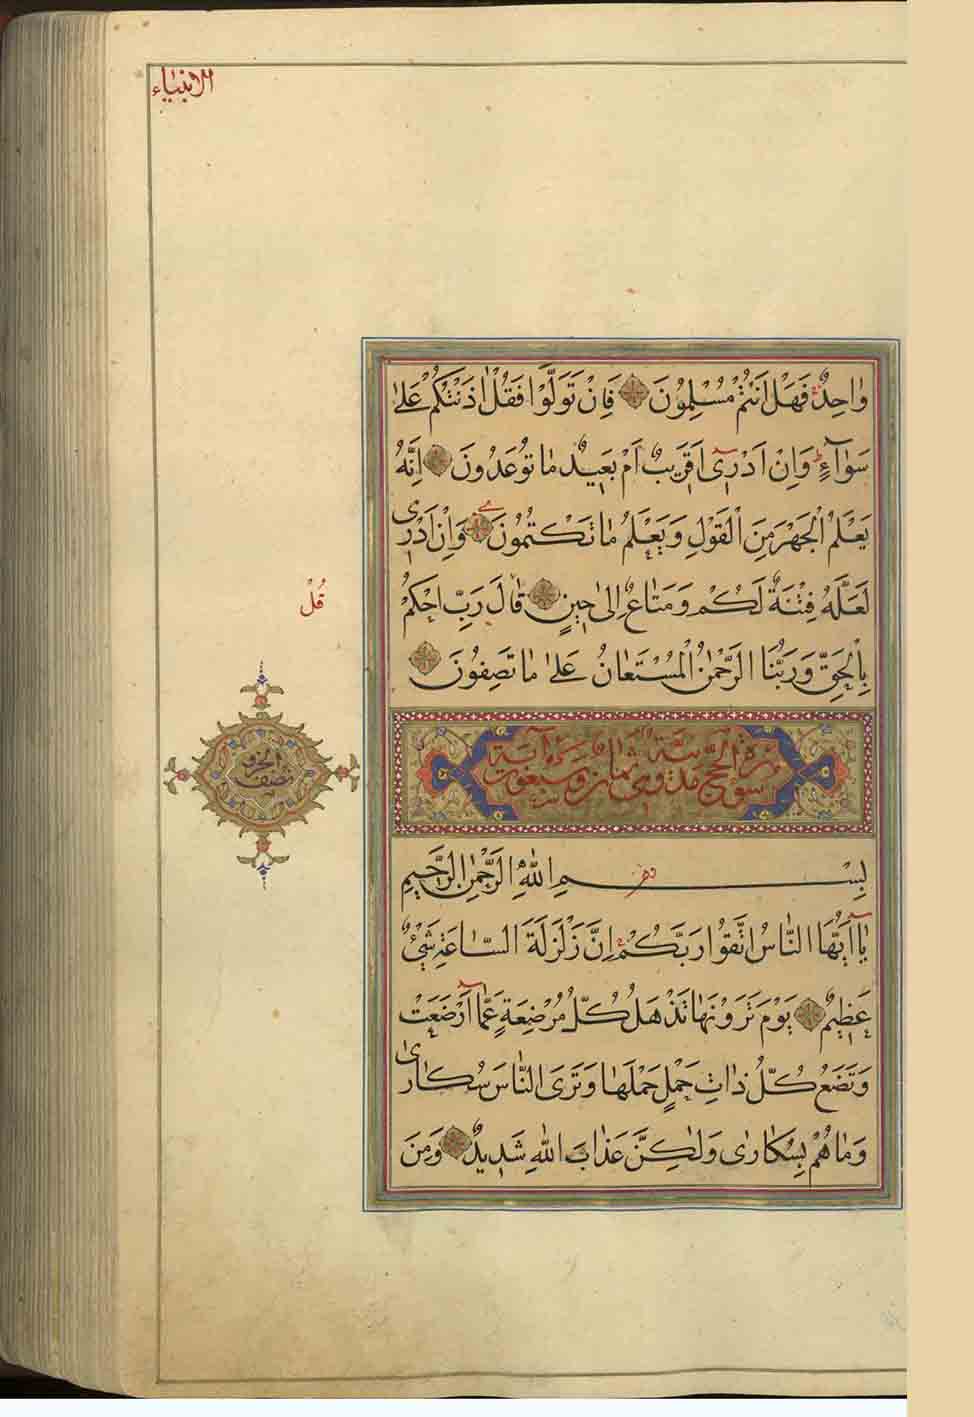 الانبياء
وٰاحِدٌ فَهَلْ اَنْتُمْ مُسْلِمُونَ فَاِنْ تَوَلَّوْا فَقُلْ اٰذَنْتُكُمْ عَلىٰ
سَوٰآءٍ وَاِنْ اَدْرٖى اَقَرٖيبٌ اَمْ بَعٖيدٌ مٰا تُوعَدُونَ اِنَّهُ
يَعْلَمُ الْجَهْرَ مِنَ الْقَوْلِ وَيَعْلَمُ مٰا تَكْتُمُونَ وَاِنْ اَدْرٖى
لَعَلَّهُ فِتْنَةٌ لَكُمْ وَمَتٰاعٌ اِلىٰ حٖينٍ قٰالَ رَبِّ احْكُمْ
قُلْ
بِالْحَقِّ وَرَبُّنَا الرَّحْمٰنُ الْمُسْتَعٰانُ عَلىٰ مٰا تَصِفُونَ
سورة الحج مدنية وهى ثمان وسبعون آية
نصف الحزب
بِسْمِ اللّٰهِ الرَّحْمٰنِ الرَّحٖيمِ
يٰآ اَيُّهَا النّٰاسُ اتَّقُوا رَبَّكُمْ اِنَّ زَلْزَلَةَ السّٰاعَةِ شَيْءٌ
عَظٖيمٌ يَوْمَ تَرَوْنَهٰا تَذْهَلُ كُلُّ مُرْضِعَةٍ عَمّٰآ اَرْضَعَتْ
وَتَضَعُ كُلُّ ذٰاتِ حَمْلٍ حَمْلَهٰا وَتَرَى النّٰاسَ سُكٰارىٰ
وَمٰا هُمْ بِسُكٰارىٰ وَلٰكِنَّ عَذٰابَ اللّٰهِ شَدٖيدٌ وَمِنَ